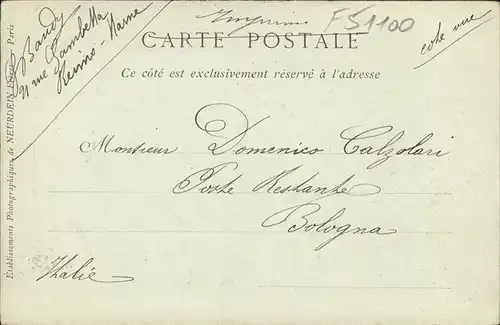 Imprimé
FS 1100
CARTE POSTALE
côté vue
Ce côté est exclusivement réservé à l'adresse
Baudy
21 rue Gambetta
Reims - Marne
Monsieur Domenico Calzolari
Poste Restante
Bologna
Italie
Établissements Photographiques de NEURDEIN Frères, Paris